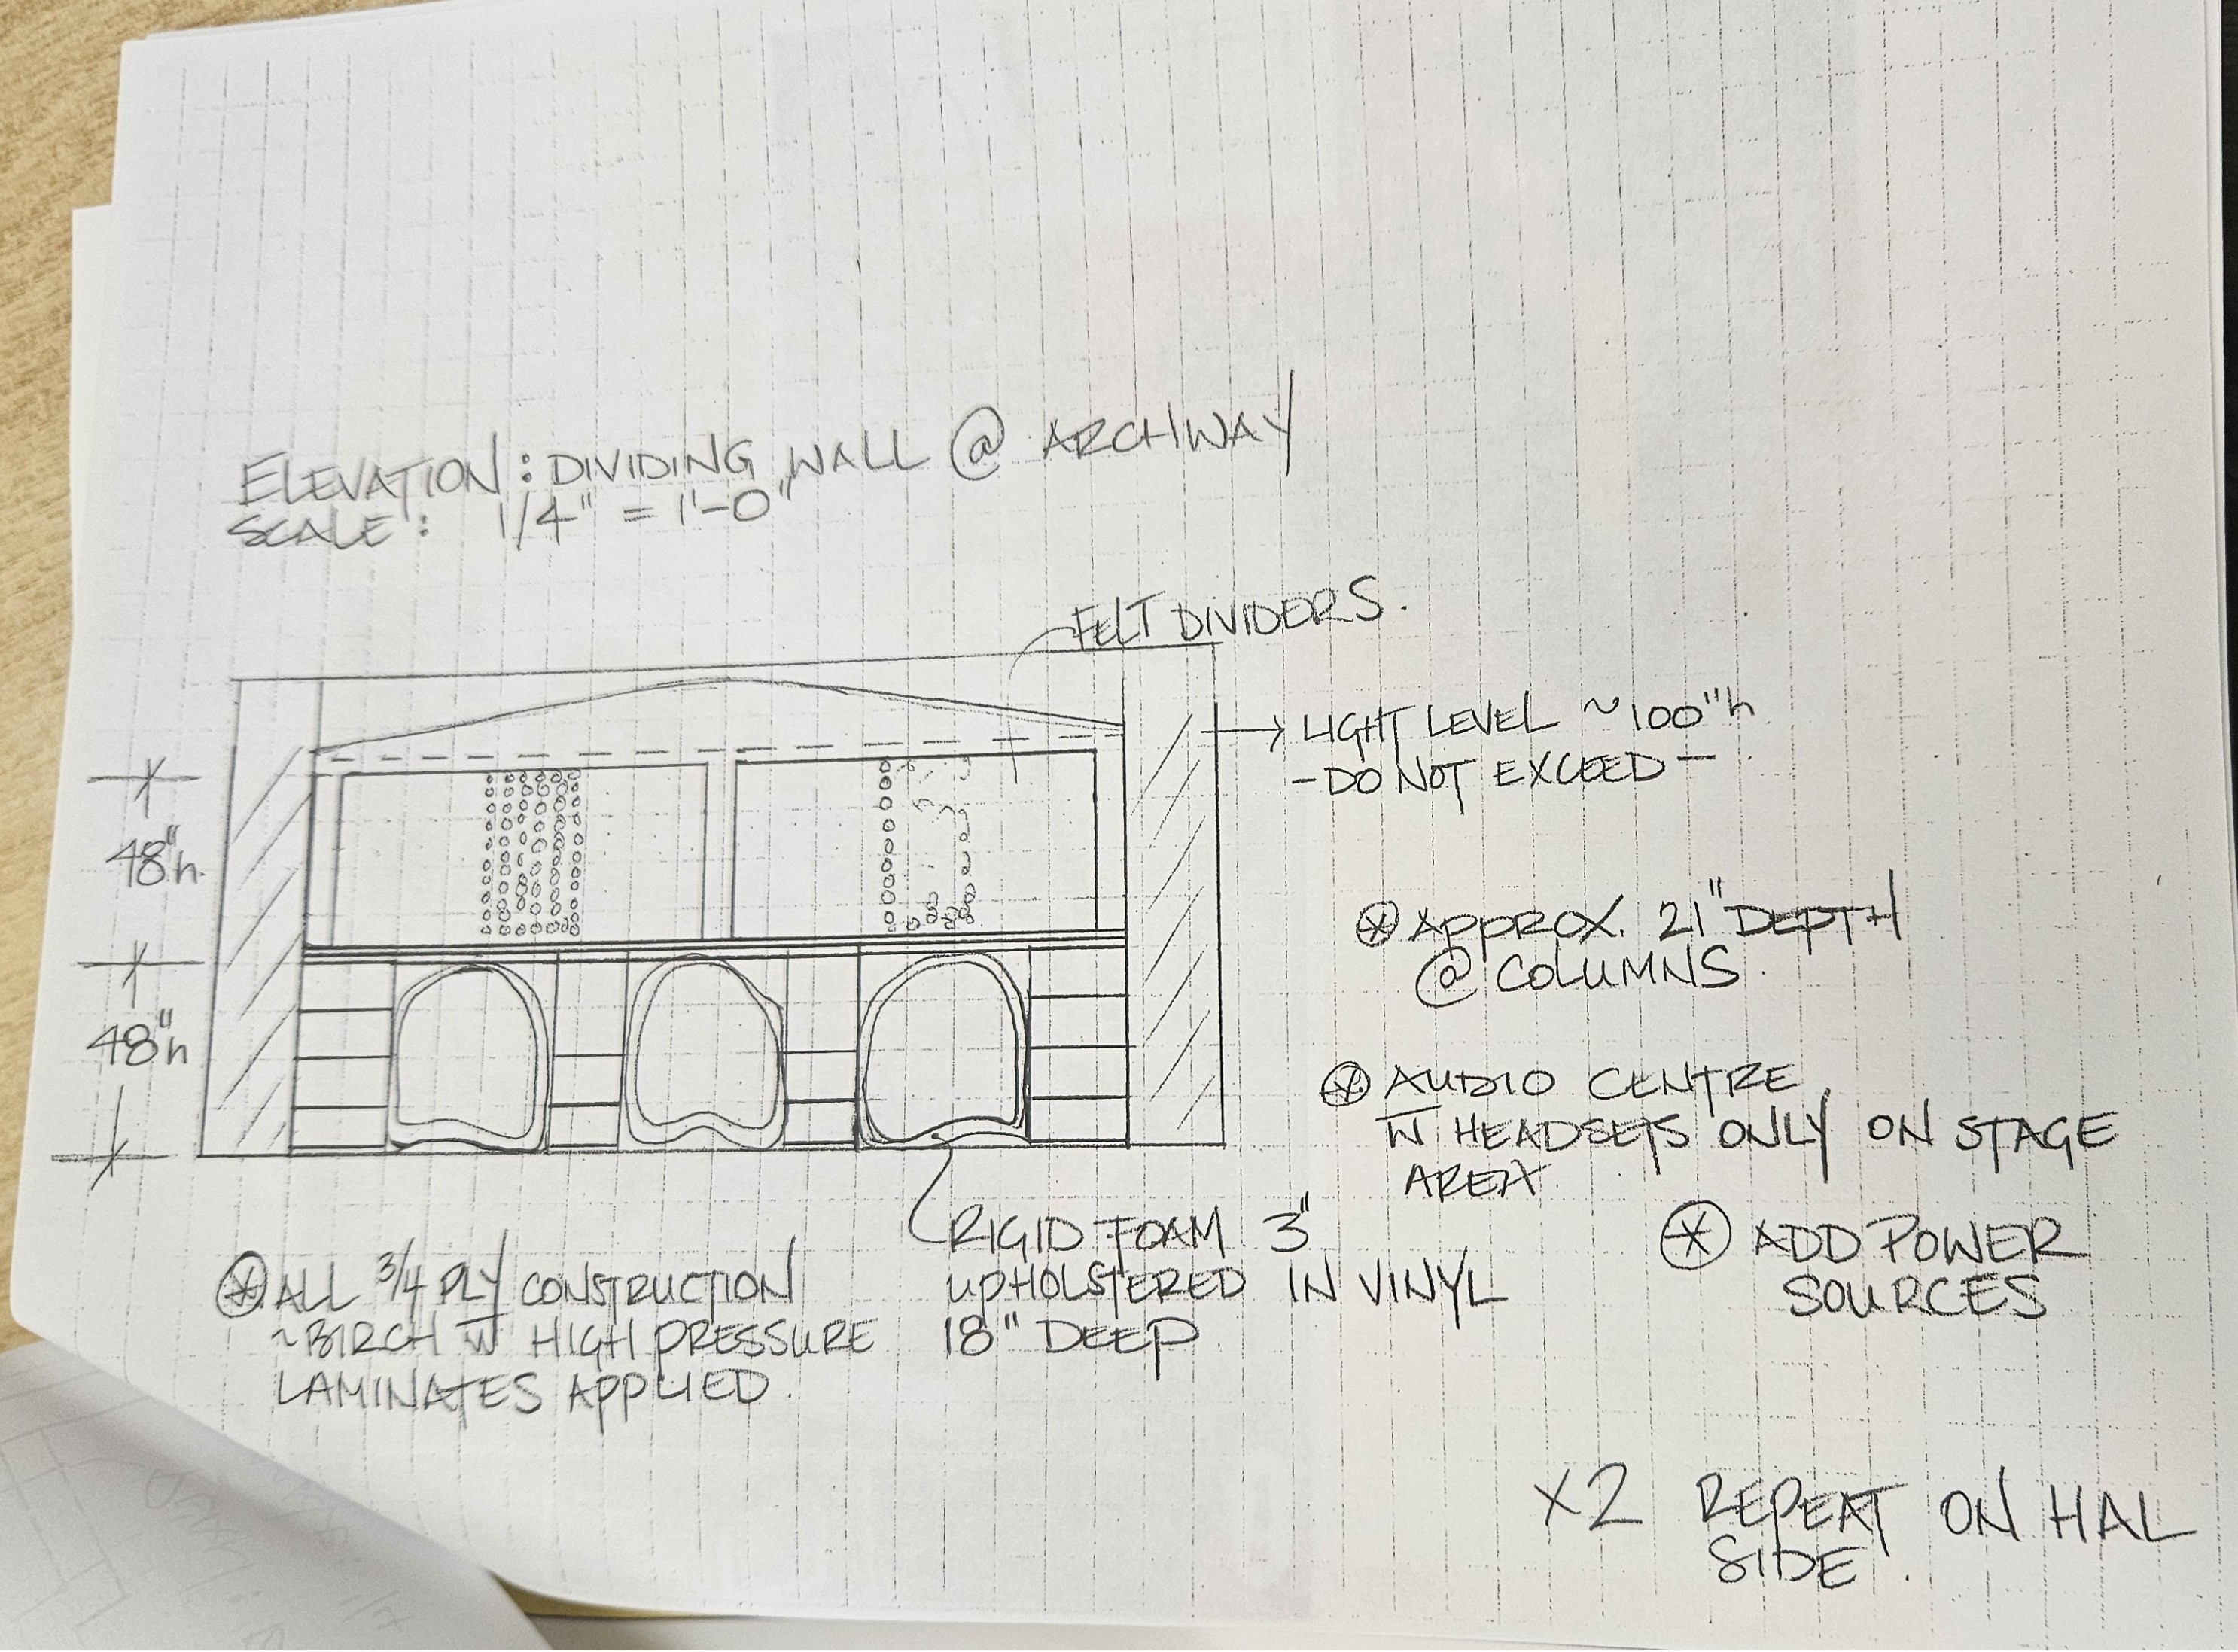 ELEVATION: DIVIDING WALL @ ARCHWAY
SCALE: 1/4" = 1'-0"
FELT DIVIDERS.
LIGHT LEVEL ~100"h
- DO NOT EXCEED -
48"h.
48"h
⊛ APPROX. 21" DEPTH
@ COLUMNS.
⊛ AUDIO CENTRE
W HEADSETS ONLY ON STAGE
AREA.
⊛ ADD POWER
SOURCES
RIGID FOAM 3"
UPHOLSTERED IN VINYL
18" DEEP.
⊛ ALL 3/4 PLY CONSTRUCTION
~BIRCH W HIGH PRESSURE
LAMINATES APPLIED.
X2 REPEAT ON HAL
SIDE.